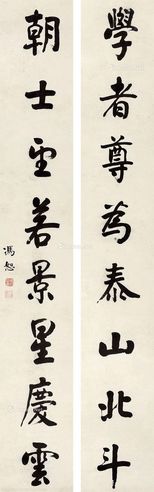 學者尊為泰山北斗
朝士望若景星慶雲
馮恕